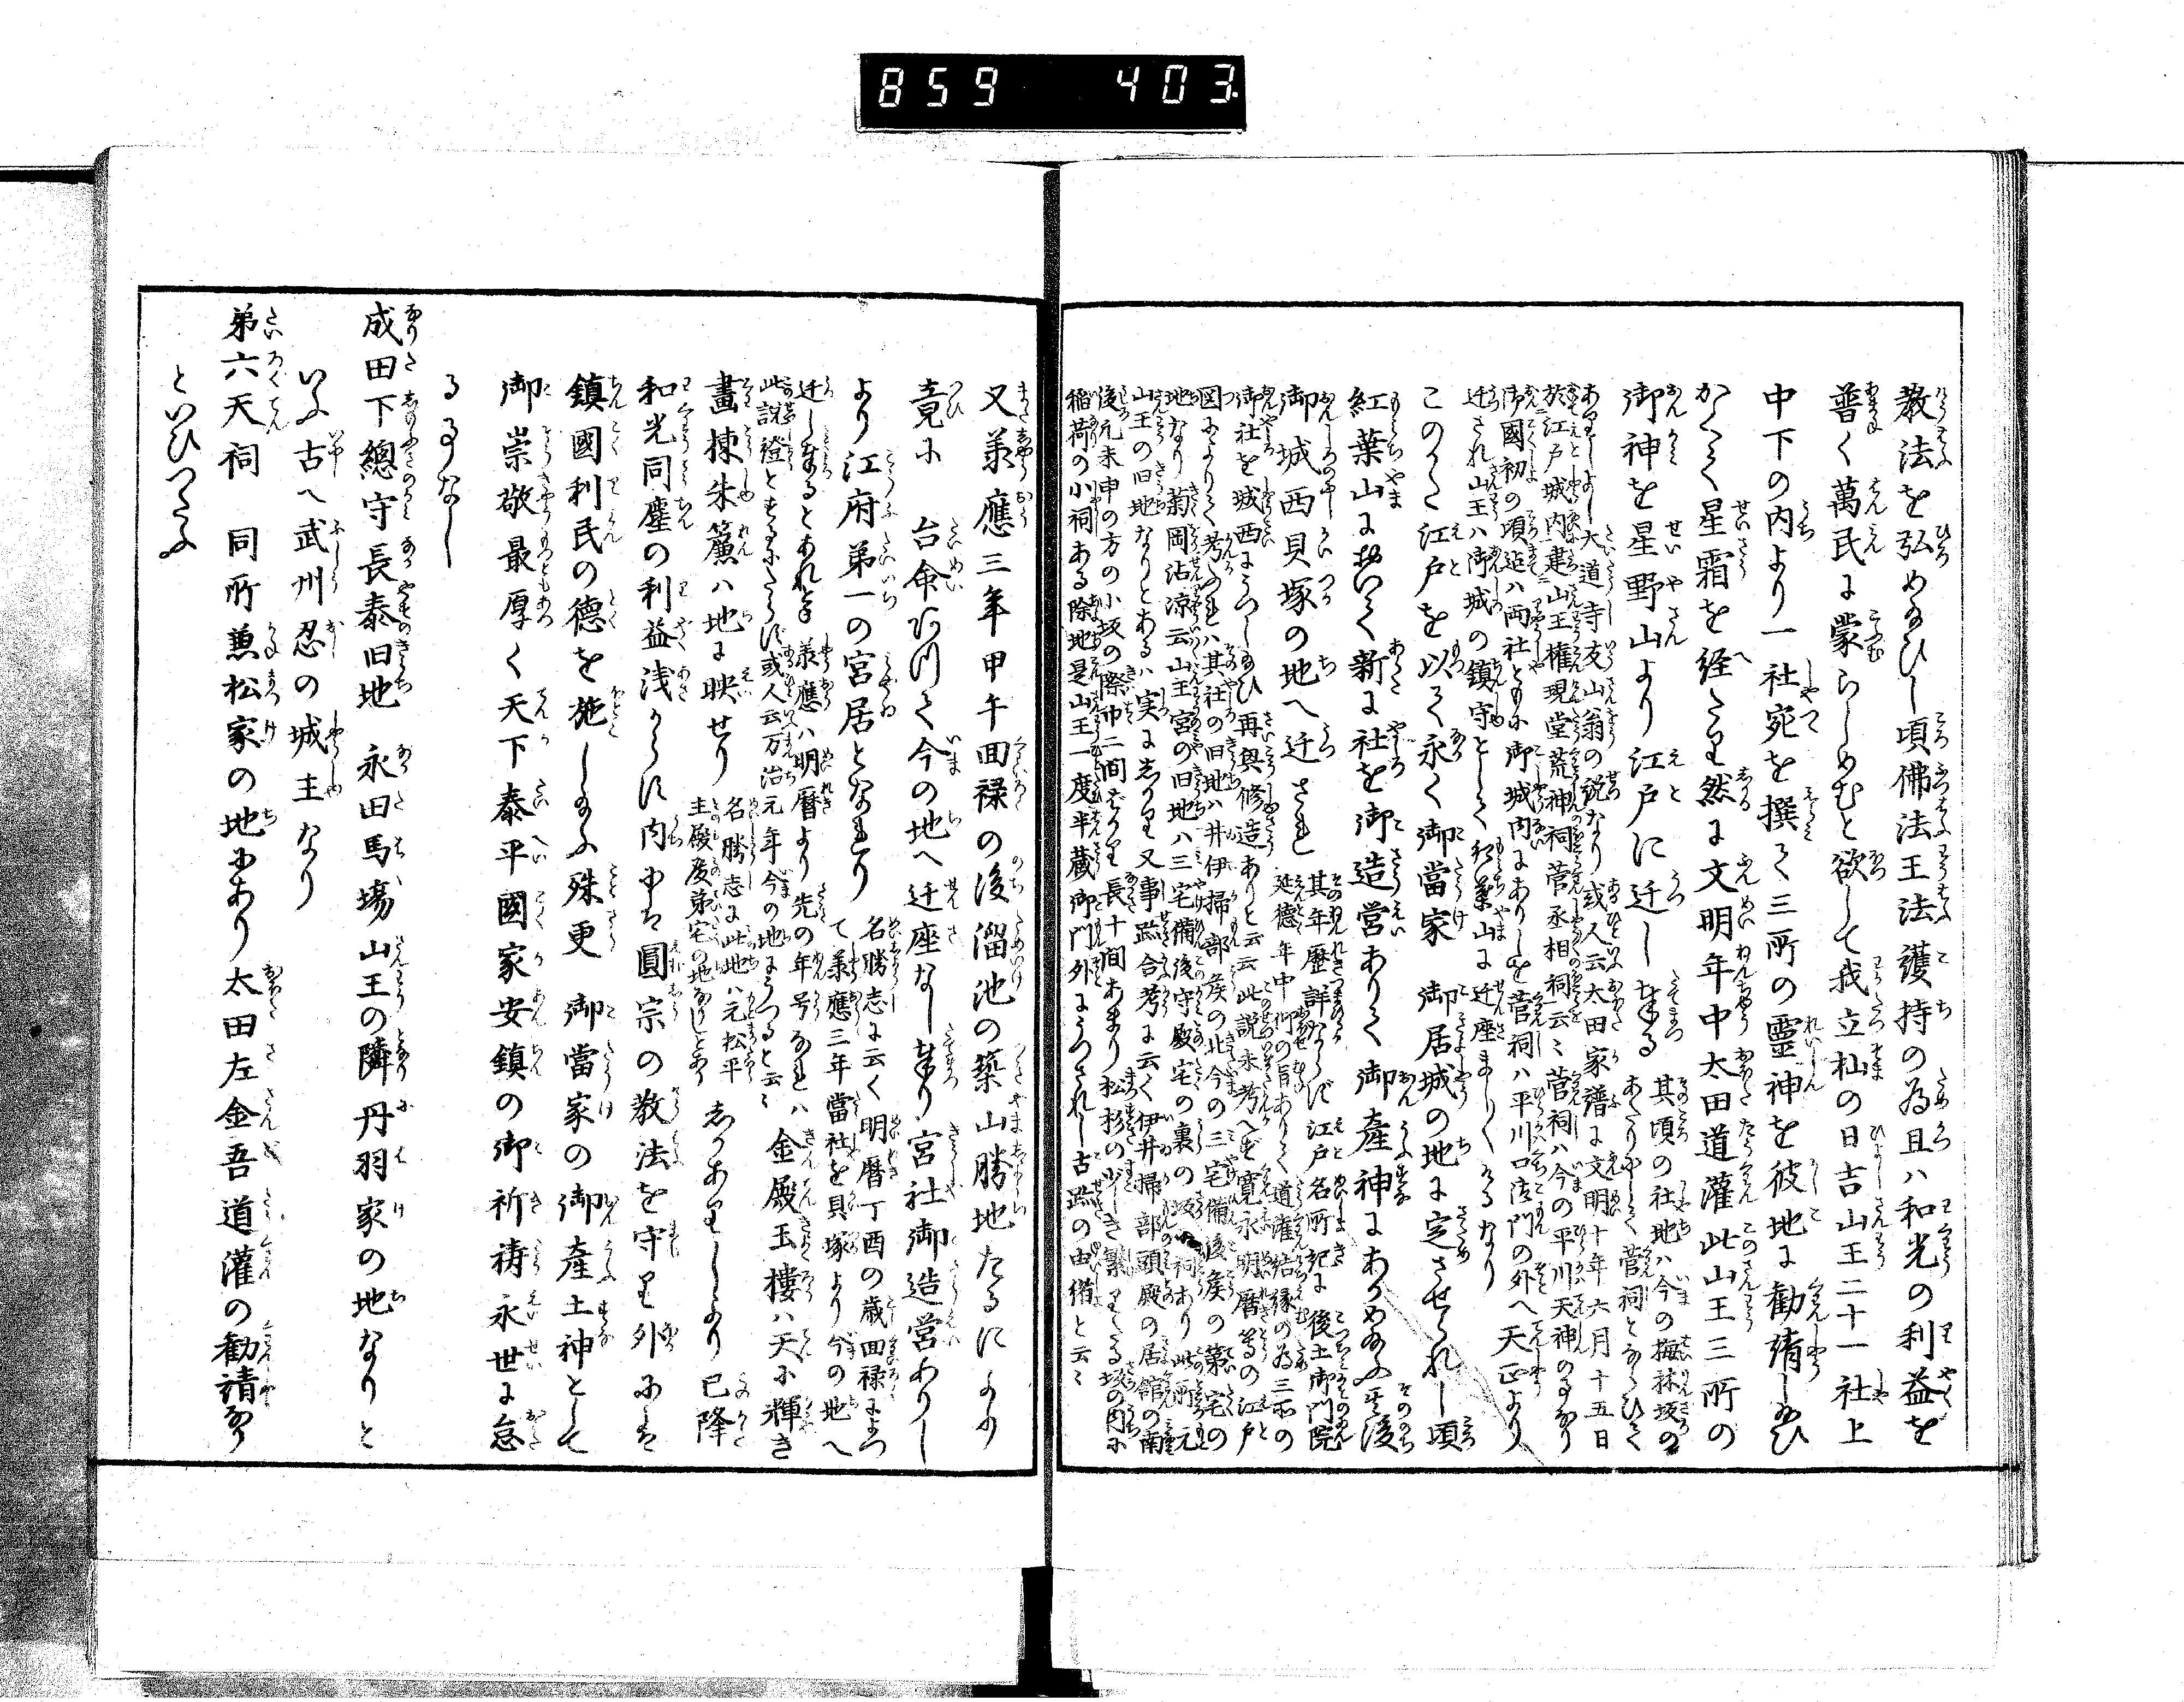 859 403
教法を弘め給ひし頃佛法王法護持の為且ハ和光の利益を
普く萬民に蒙らしめむと欲して我立杣の日吉山王二十一社上
中下の内より一社宛を撰て三所の靈神を彼地に勧請し給ひ
かくて星霜を経たり然に文明年中太田道灌此山王三所の
御神を星野山より江戸に迁し奉る
其頃の社地ハ今の梅林坂の
あたりやして菅祠とならひて
ありしよし大道寺友山翁の説なり或人云太田家譜に文明十年六月十五日
於江戸城内建山王権現堂荒神祠菅丞相祠云ミ菅祠ハ今の平川天神の事なり
御國初の頃迄ハ両社ともに御城内にありしを菅祠ハ平川口御門の外へ天正より
迁され山王ハ御城の鎮守として紅葉山に迁座ましく けるなり
このかた江戸を以て永く御當家 御居城の地に定させられし頃
紅葉山に於いて新に社を御造営ありて御産神にあかめ給ふ其後
御城西貝塚の地へ迁さる
其年歴詳ならず江戸名所記に後土御門院
延徳年中御の旨ありて道灌結縁の為三所の
御社を城西にうつし給ひ再興修造ありと云云此説未考へず寛永明暦等の江戸
図によりて考ふれハ其社の旧地ハ井伊掃部侯の北今の三宅備後侯の第宅の
地なり菊岡沾凉云山王宮の旧地ハ三宅備後守殿宅の裏の坂 祠あり此所元
山王の旧地なりとあるハ実に志かり又事蹟合考に云く伊井掃部頭殿の居館の南
後元未申の方の小坂の際 二間 長十間あまり松杉の少しき繁りたる坂の内に
稲荷の小祠ある除地是山王一度半蔵御門外にうつされし古蹟の由備と云ミ
又羕應三年甲午囬禄の後溜池の築山勝地たるにより
竟に 台命 て今の地へ迁座なし奉り宮社御造営ありし
より江府弟一の宮居となれり
名勝志に云く明暦丁酉の歳囬禄によつ
て羕應三年當社を貝塚より今の地へ
迁し奉るとあれとも羕應ハ明暦より先の年号なれハ
此説證ともするにたらす或人云万治元年今の地にうつると云ミ
金殿玉樓ハ天に輝き
畫棟朱簾ハ地に映せり
名勝志に此地ハ元松平
主殿侯弟宅の地なりしとあり
志かありしより已降
和光同塵の利益浅からす内にハ圓宗の教法を守り外にハ
鎮國利民の德を施し給ふ殊更 御當家の御產土神として
御崇敬最厚く天下泰平國家安鎮の御祈祷永世に怠
る事なし
成田下總守長泰旧地 永田馬場山王の隣丹羽家の地なりと
いふ古へ武州忍の城主なり
弟六天祠 同所兼松家の地にあり太田左金吾道灌の勧請なり
といひつたふ